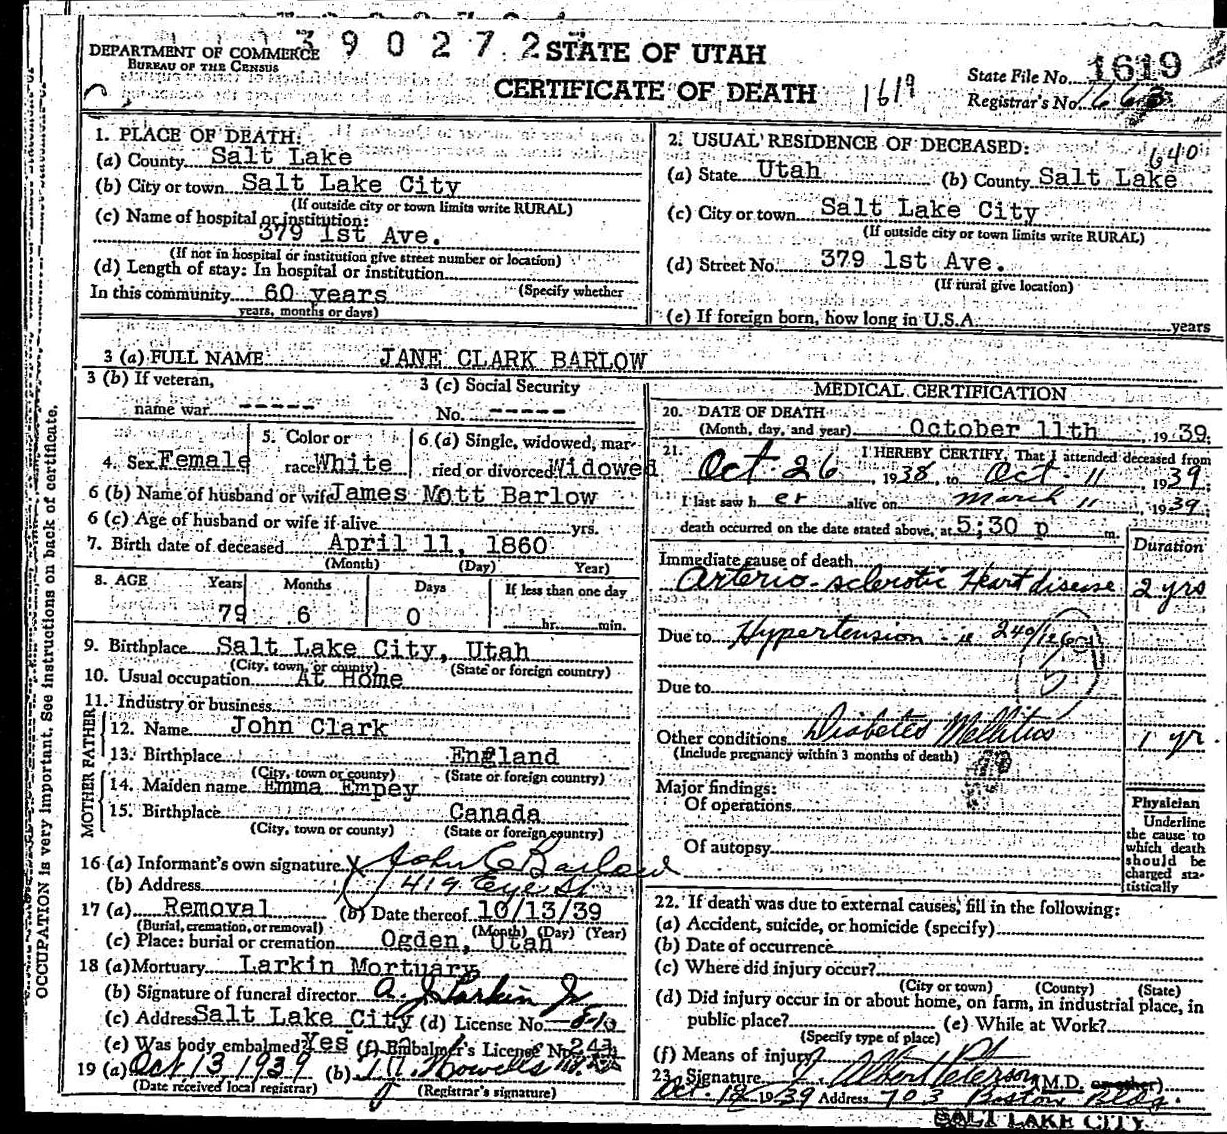 3 9 0 2 7 2
DEPARTMENT OF COMMERCE
BUREAU OF THE CENSUS
STATE OF UTAH
CERTIFICATE OF DEATH
1619
State File No. 1619
Registrar's No.
1. PLACE OF DEATH:
(a) County Salt Lake
(b) City or town Salt Lake City
(If outside city or town limits write RURAL)
(c) Name of hospital or institution:
379 1st Ave.
(If not in hospital or institution give street number or location)
(d) Length of stay: In hospital or institution
(Specify whether
In this community 60 years
years, months or days)
2. USUAL RESIDENCE OF DECEASED:
640
(a) State Utah (b) County Salt Lake
(c) City or town Salt Lake City
(If outside city or town limits write RURAL)
(d) Street No. 379 1st Ave.
(If rural give location)
(e) If foreign born, how long in U.S.A. years
3 (a) FULL NAME JANE CLARK BARLOW
3 (b) If veteran,
name war -----
3 (c) Social Security
No. -----
4. Sex Female
5. Color or
race White
6. (a) Single, widowed, mar-
ried or divorced Widowed
6 (b) Name of husband or wife James Mott Barlow
6 (c) Age of husband or wife if alive yrs.
7. Birth date of deceased April 11, 1860
(Month) (Day) Year)
8. AGE Years Months Days If less than one day
79 6 0 hr. min.
9. Birthplace Salt Lake City, Utah
(City, town, or county) (State or foreign country)
10. Usual occupation At Home
11. Industry or business
FATHER
12. Name John Clark
13. Birthplace England
(City, town or county) (State or foreign country)
MOTHER
14. Maiden name Emma Empey
15. Birthplace Canada
(City, town or county) (State or foreign country)
16 (a) Informant's own signature X John C Barlow
(b) Address 419 Eye St
17 (a) Removal (b) Date thereof 10/13/39
(Burial, cremation, or removal) (Month) (Day) (Year)
(c) Place: burial or cremation Ogden, Utah
18 (a) Mortuary Larkin Mortuary
(b) Signature of funeral director A. J. Larkin Jr
(c) Address Salt Lake City (d) License No.
(e) Was body embalmed? Yes (f) Embalmer's License No. 243
19 (a) Oct 13 1939 (b)
(Date received local registrar) (Registrar's signature)
MEDICAL CERTIFICATION
20. DATE OF DEATH
(Month, day, and year) October 11th, 1939
21. I HEREBY CERTIFY, That I attended deceased from
Oct. 26, 1938, to Oct. 11, 1939;
I last saw her alive on March 11, 1939;
death occurred on the date stated above, at 5:30 p m.
Duration
Immediate cause of death
Arterio-sclerotic Heart disease 2 yrs
Due to Hypertension
Due to
Other conditions Diabetes Mellitus 1 yr.
(Include pregnancy within 3 months of death)
Major findings:
Of operations
Of autopsy
Physician
Underline
the cause to
which death
should be
charged sta-
tistically
22. If death was due to external causes, fill in the following:
(a) Accident, suicide, or homicide (specify)
(b) Date of occurrence
(c) Where did injury occur?
(City or town) (County) (State)
(d) Did injury occur in or about home, on farm, in industrial place, in
public place? (e) While at Work?
(Specify type of place)
(f) Means of injury
23. Signature J. Albert Peterson (M.D. or other)
1939 Address 703 Boston Bldg.
SALT LAKE CITY
OCCUPATION is very important. See instructions on back of certificate.